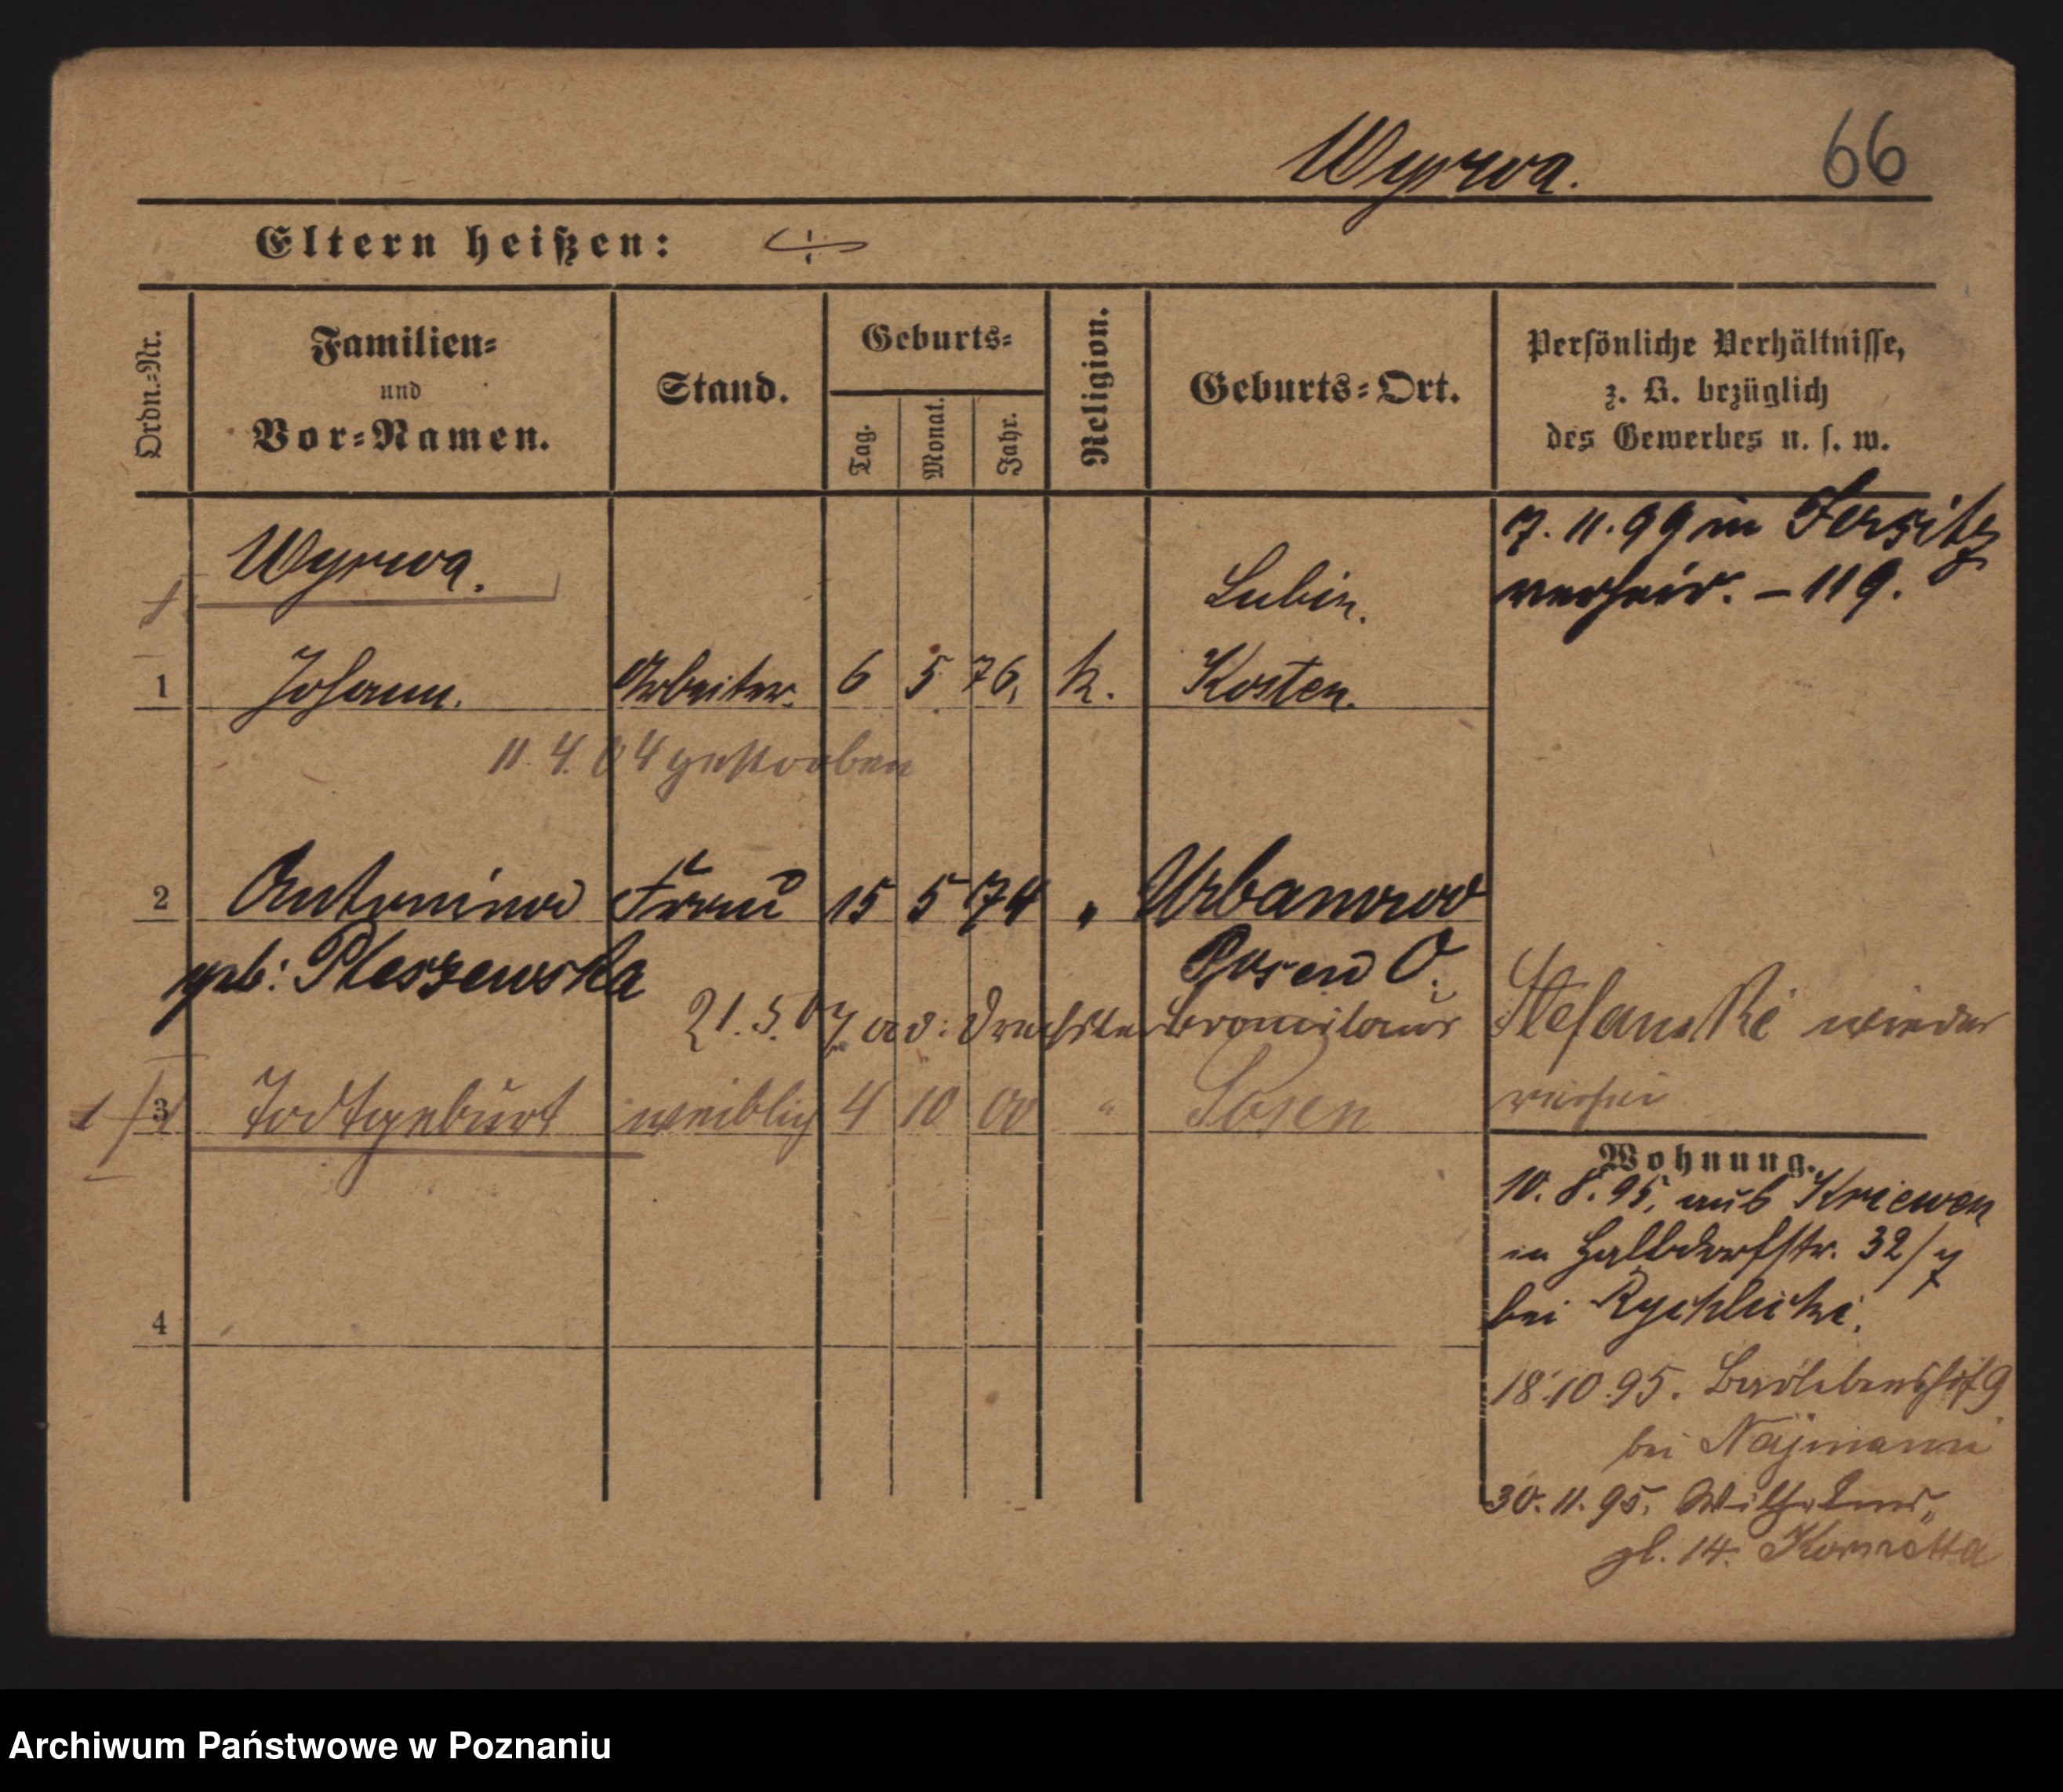 Wyrwa. 66
Eltern heißen:
Ordn.=Nr.
Familien=
und
Vor=Namen.
Stand.
Geburts=
Tag.
Monat.
Jahr.
Religion.
Geburts=Ort.
Persönliche Verhältnisse,
z. B. bezüglich
des Gewerbes u. s. w.
7. 11. 99 in Jersitz
verheir. – 119.
Wyrwa.
Lubin.
1 Johann. Arbeiter. 6 5 76. k. Kosten.
11. 4. 04 gestorben
2 Antonina Frau 15 5 74 " Urbanowo
geb: Pleszewska Posen O.
21. 5. 07 Stefanski wieder
3 Todtgeburt weiblich 4 10 00 " Posen
Wohnung.
10. 8. 95. aus Kriewen
in Halbdorfstr. 32/7
bei Rychlicki.
4
18. 10. 95.
bei
30. 11. 95. Wilhelms„
pl. 14.
Archiwum Państwowe w Poznaniu